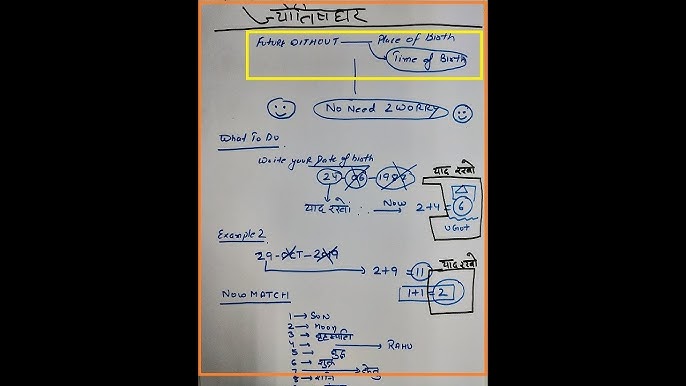 ज्योतिष द्वार
FUTURE WITHOUT — Place of Birth
Time of Birth
No Need 2 WORRY
What To Do
Write your Date of birth
24 - 06 - 1982
याद रखो
याद रखो :. → Now 2+4 = 6
U Got
Example 2
29 - OCT - 2019
याद रखो
→ 2+9 = 11
1+1 = 2
NOW MATCH
1 → SUN
2 → Moon
3 → बृहस्पति
4 → RAHU
5 → बुद्ध
6 → शुक्र
7 → केतु
8 → शनि